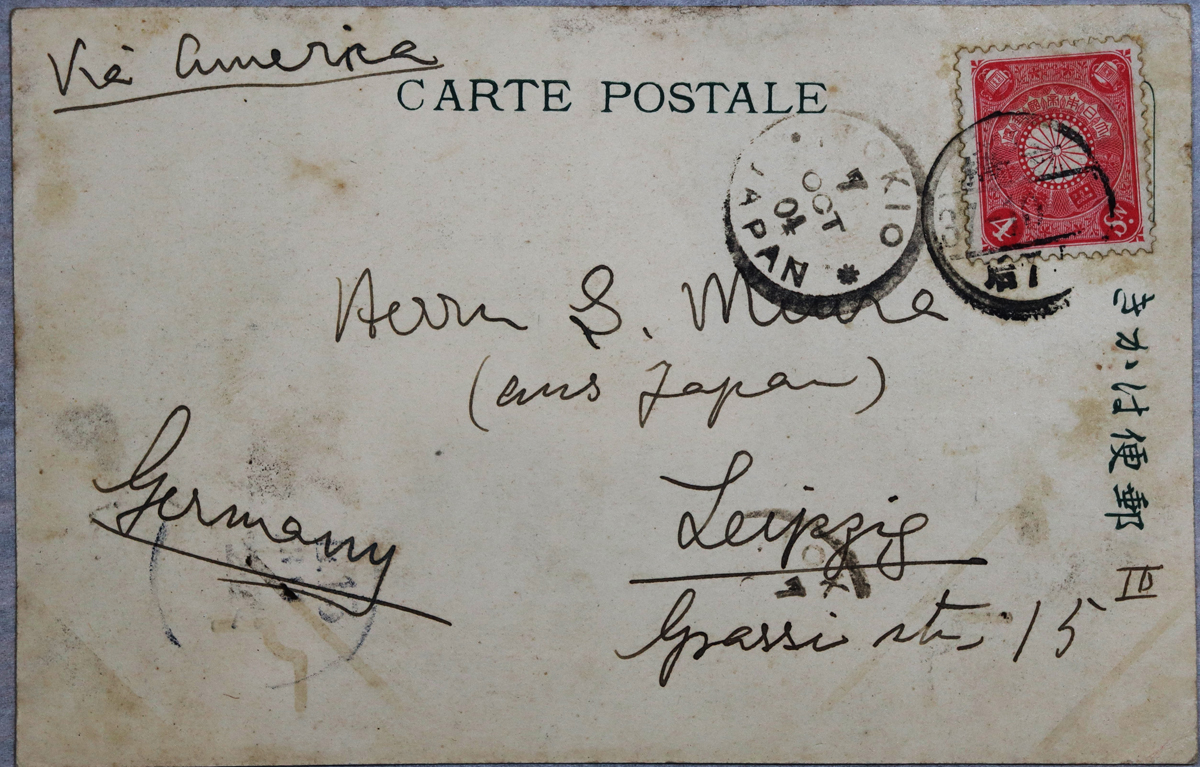 Via America
CARTE POSTALE
TOKIO
OCT
04
JAPAN
4 Sn.
Herrn S. Miura
(aus Japan)
Germany
Leipzig
Grassi str. 15
きかは便郵